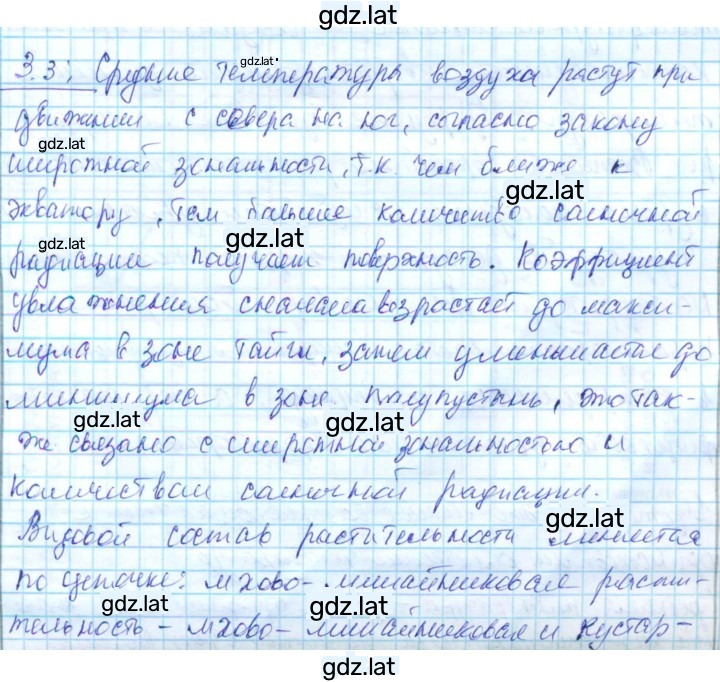 gdz.lat
3.3. Средние температуры воздуха растут при
gdz.lat
движении с севера на юг, согласно закону
gdz.lat
широтной зональности, т.к. чем ближе к
gdz.lat
экватору, тем больше количество солнечной
gdz.lat
gdz.lat
радиации получает поверхность. Коэффициент
увлажнения сначала возрастает до макси-
мума в зоне тайги, затем уменьшается до
gdz.lat
минимума в зоне полупустынь, это так-
gdz.lat
gdz.lat
же связано с широтной зональностью и
количеством солнечной радиации.
Видовой состав растительности меняется
gdz.lat
по цепочке: мхово-лишайниковая расти-
gdz.lat
gdz.lat
тельность - мхово-лишайниковая и кустар-
gdz.lat